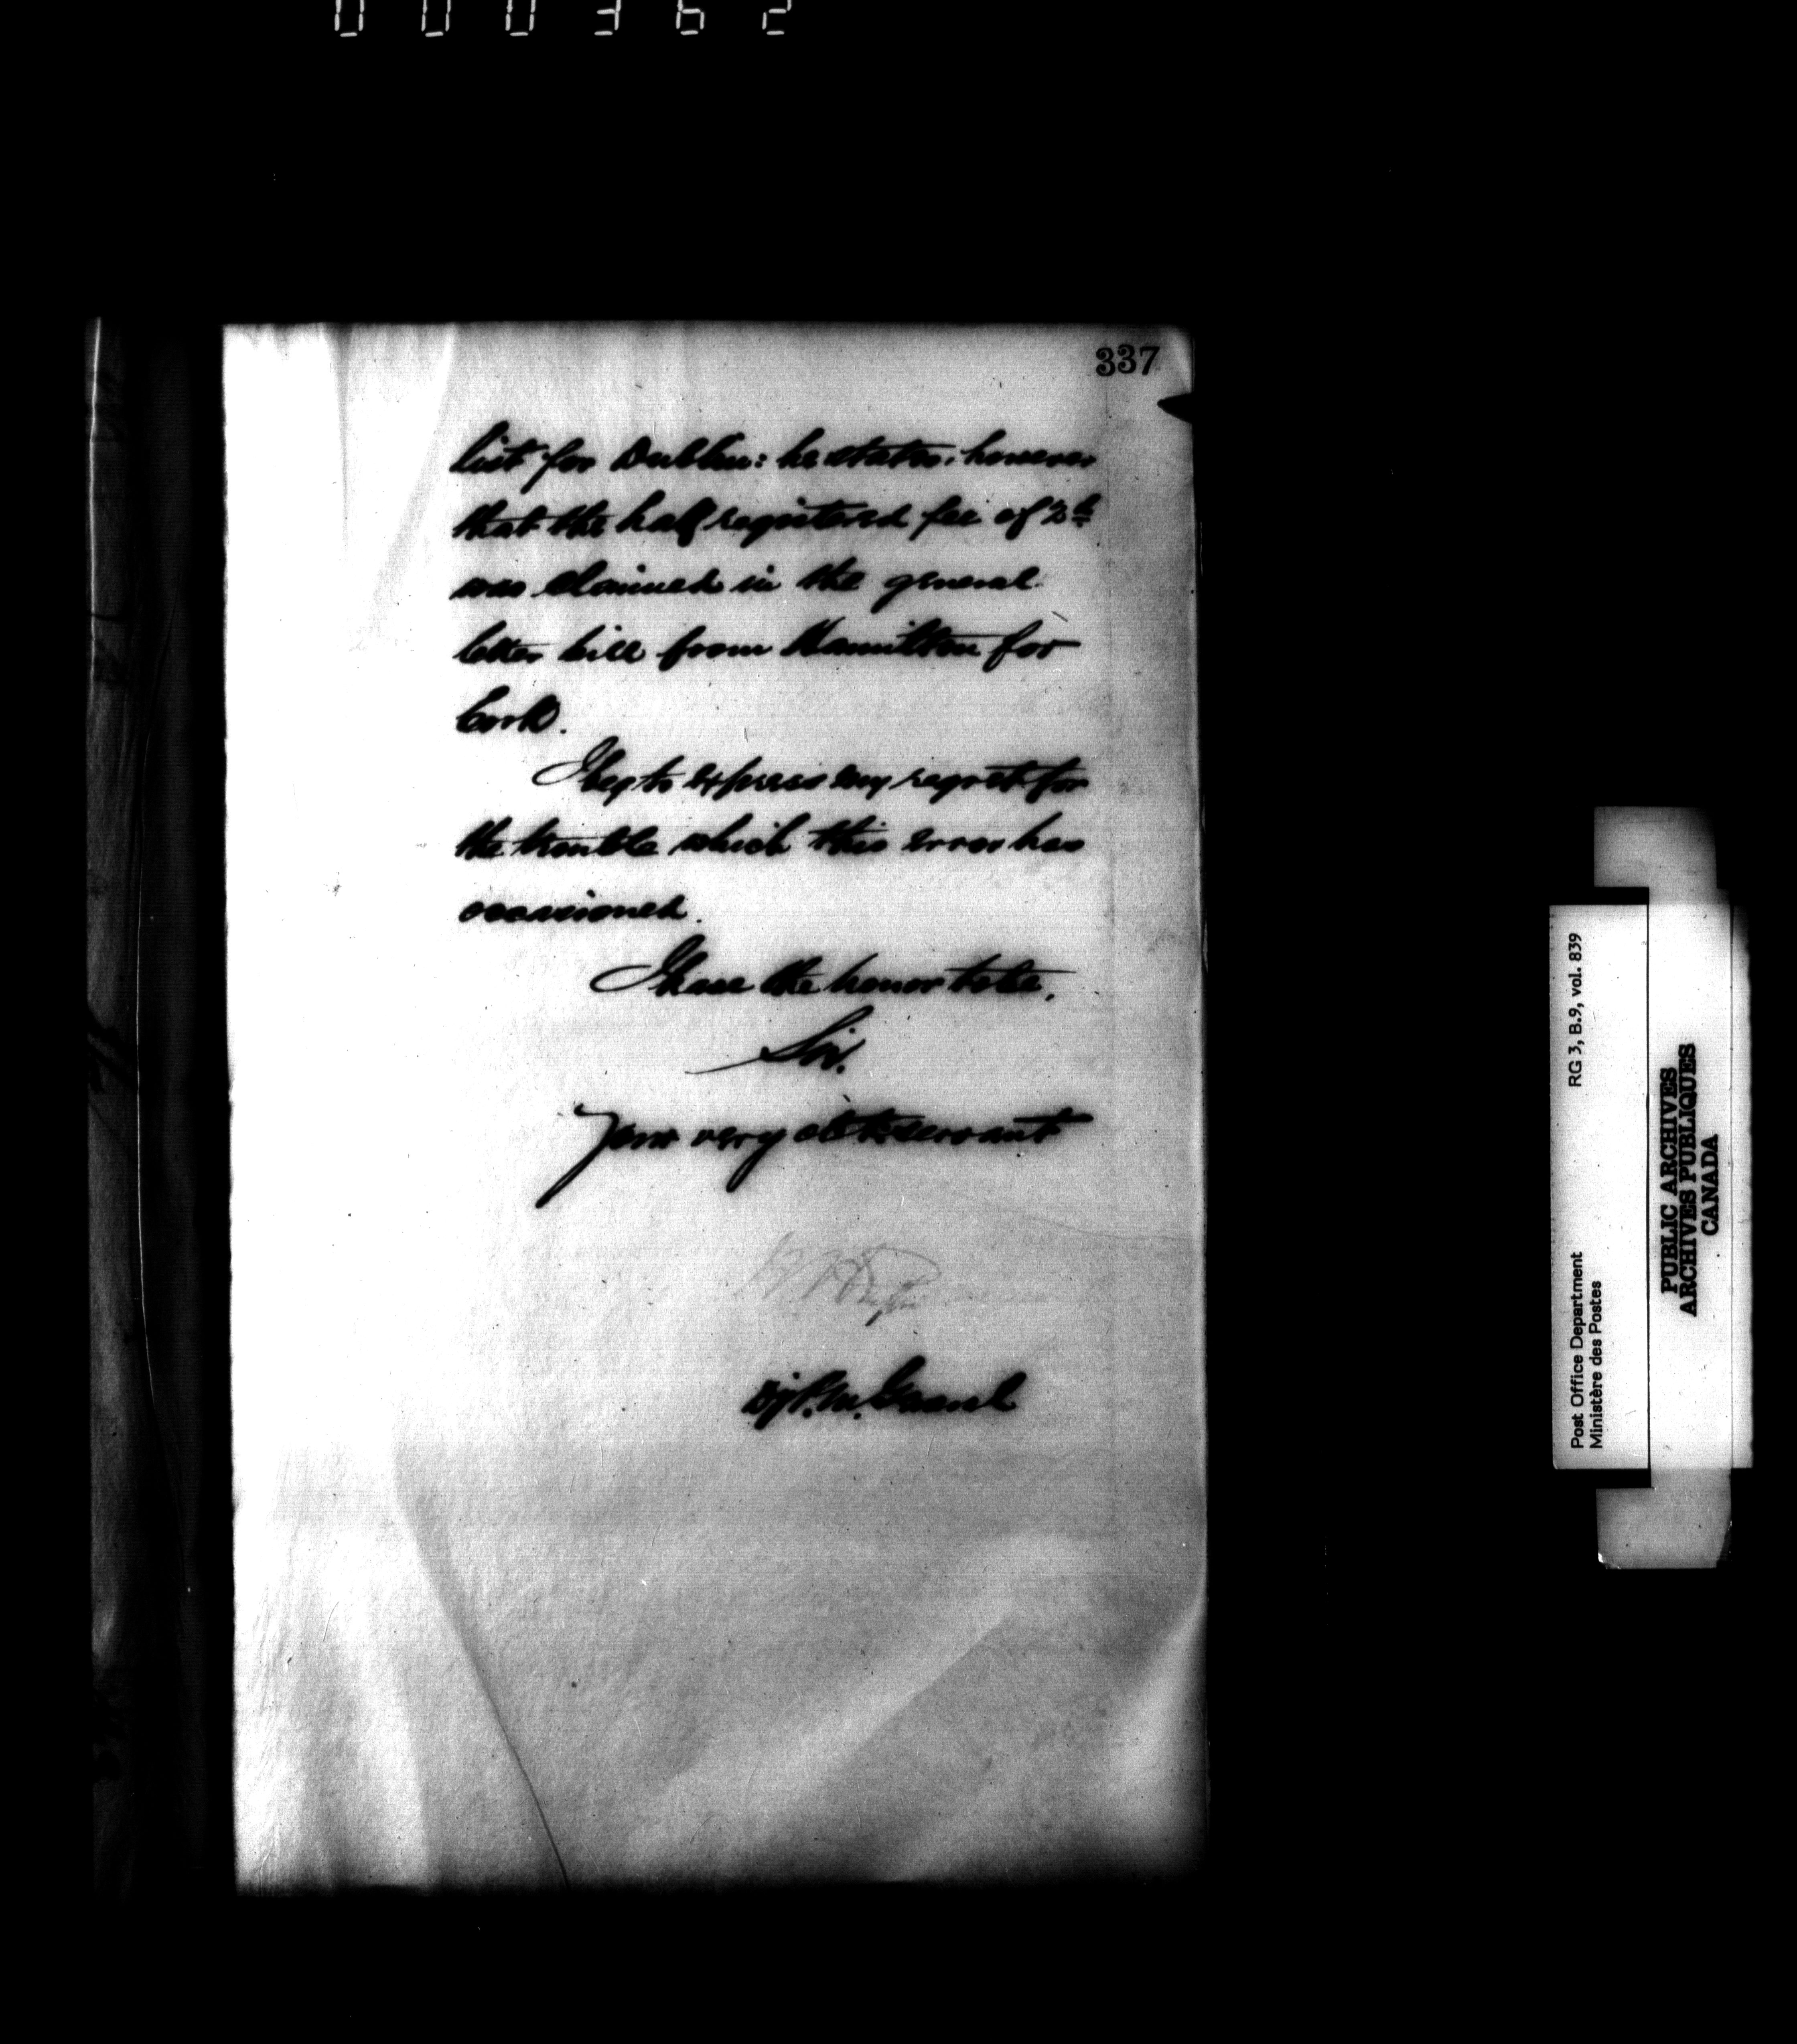 000362
337
list for Dublin: he states, however
that the half registered fee of 2d
was claimed in the general
letter bill from Hamilton for
Cork.
I beg to express my regret for
the trouble which this error has
occasioned.
I have the honor to be,
Sir,
Your very obt servant
W H Griffin
D'y P. M. General
RG 3, B.9, vol. 839
Post Office Department
Ministère des Postes
PUBLIC ARCHIVES
ARCHIVES PUBLIQUES
CANADA